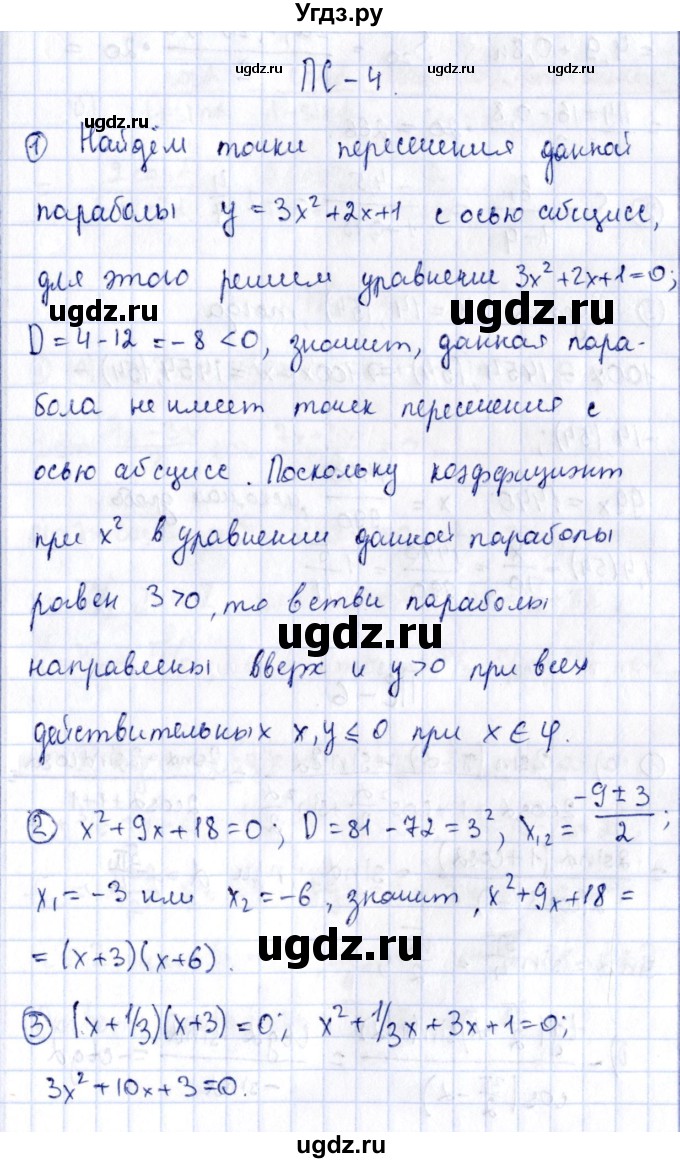 Угдз.ру
ugdz.ru ugdz.ru
ПС - 4.
① Найдём точки пересечения данной
параболы y = 3x²+2x+1 с осью абсцисс,
для этого решим уравнение 3x²+2x+1=0;
ugdz.ru ugdz.ru
D = 4-12 = -8 < 0, значит, данная пара-
бола не имеет точек пересечения с
осью абсцисс. Поскольку коэффициент
при x² в уравнении данной параболы
равен 3>0, то ветви параболы
ugdz.ru
направлены вверх и y>0 при всех
действительных x, y ⩽ 0 при x ∈ φ.
② x²+9x+18=0; D=81-72=3², x₁,₂ = (-9±3)/2;
x₁=-3 или x₂=-6, значит, x²+9x+18=
= (x+3)(x+6).
ugdz.ru ugdz.ru
③ (x+1/3)(x+3)=0; x²+1/3x+3x+1=0;
3x²+10x+3=0.
ugdz.ru